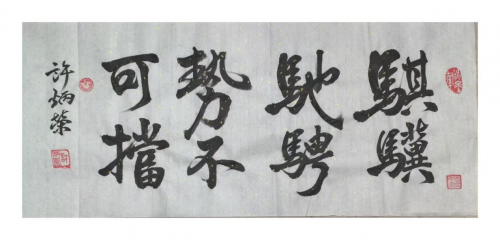 騏驥
馳騁
勢不
可擋
許炳榮